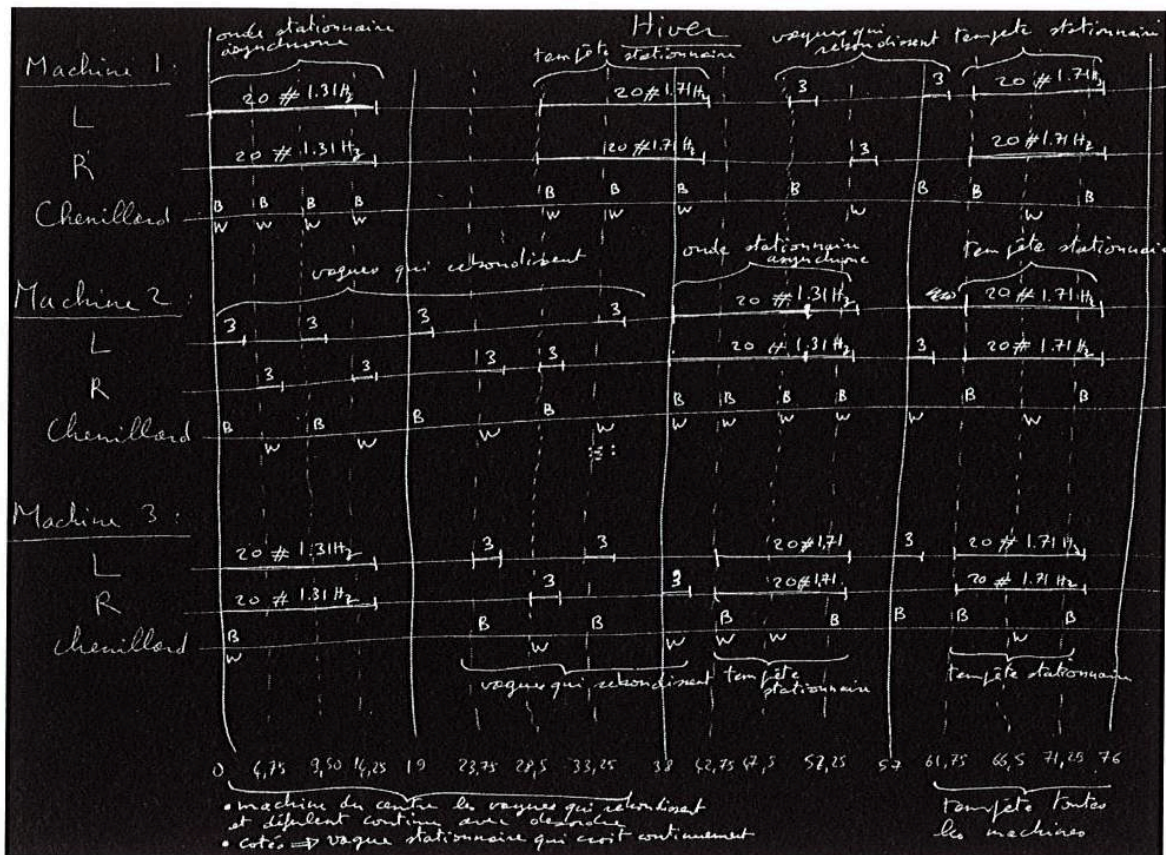 onde stationnaire
asynchrone
Hiver
tempête stationnaire
vagues qui rebondissent
tempête stationnaire
Machine 1 :
20 # 1.31Hz 20 # 1.71Hz 3 3 20 # 1.71Hz
L
20 # 1.31Hz 20 # 1.71Hz 3 20 # 1.71Hz
R
B B B B B B B B B B B
Chenillard
W W W W W W W W W
vagues qui rebondissent
onde stationnaire
asynchrone
tempête stationnaire
Machine 2 :
3 3 3 3 20 # 1.31Hz 20 # 1.71Hz
L
3 3 3 3 20 # 1.31Hz 3 20 # 1.71Hz
R
B B B B B B B B B B
Chenillard
W W W W W W W W W W
Machine 3 :
20 # 1.31Hz 3 3 20 # 1,71 3 20 # 1.71Hz
L
20 # 1.31Hz 3 3 20 # 1,71 20 # 1.71Hz
R
B B B B B B B B
Chenillard
W W W W W W
vagues qui rebondissent
tempête
stationnaire
tempête stationnaire
0 4,75 9,50 14,25 19 23,75 28,5 33,25 38 42,75 47,5 52,25 57 61,75 66,5 71,25 76
• machine du centre les vagues qui rebondissent
et défilent continu avec désordre
• cotés ⇒ vague stationnaire qui croit continuement
tempête toutes
les machines